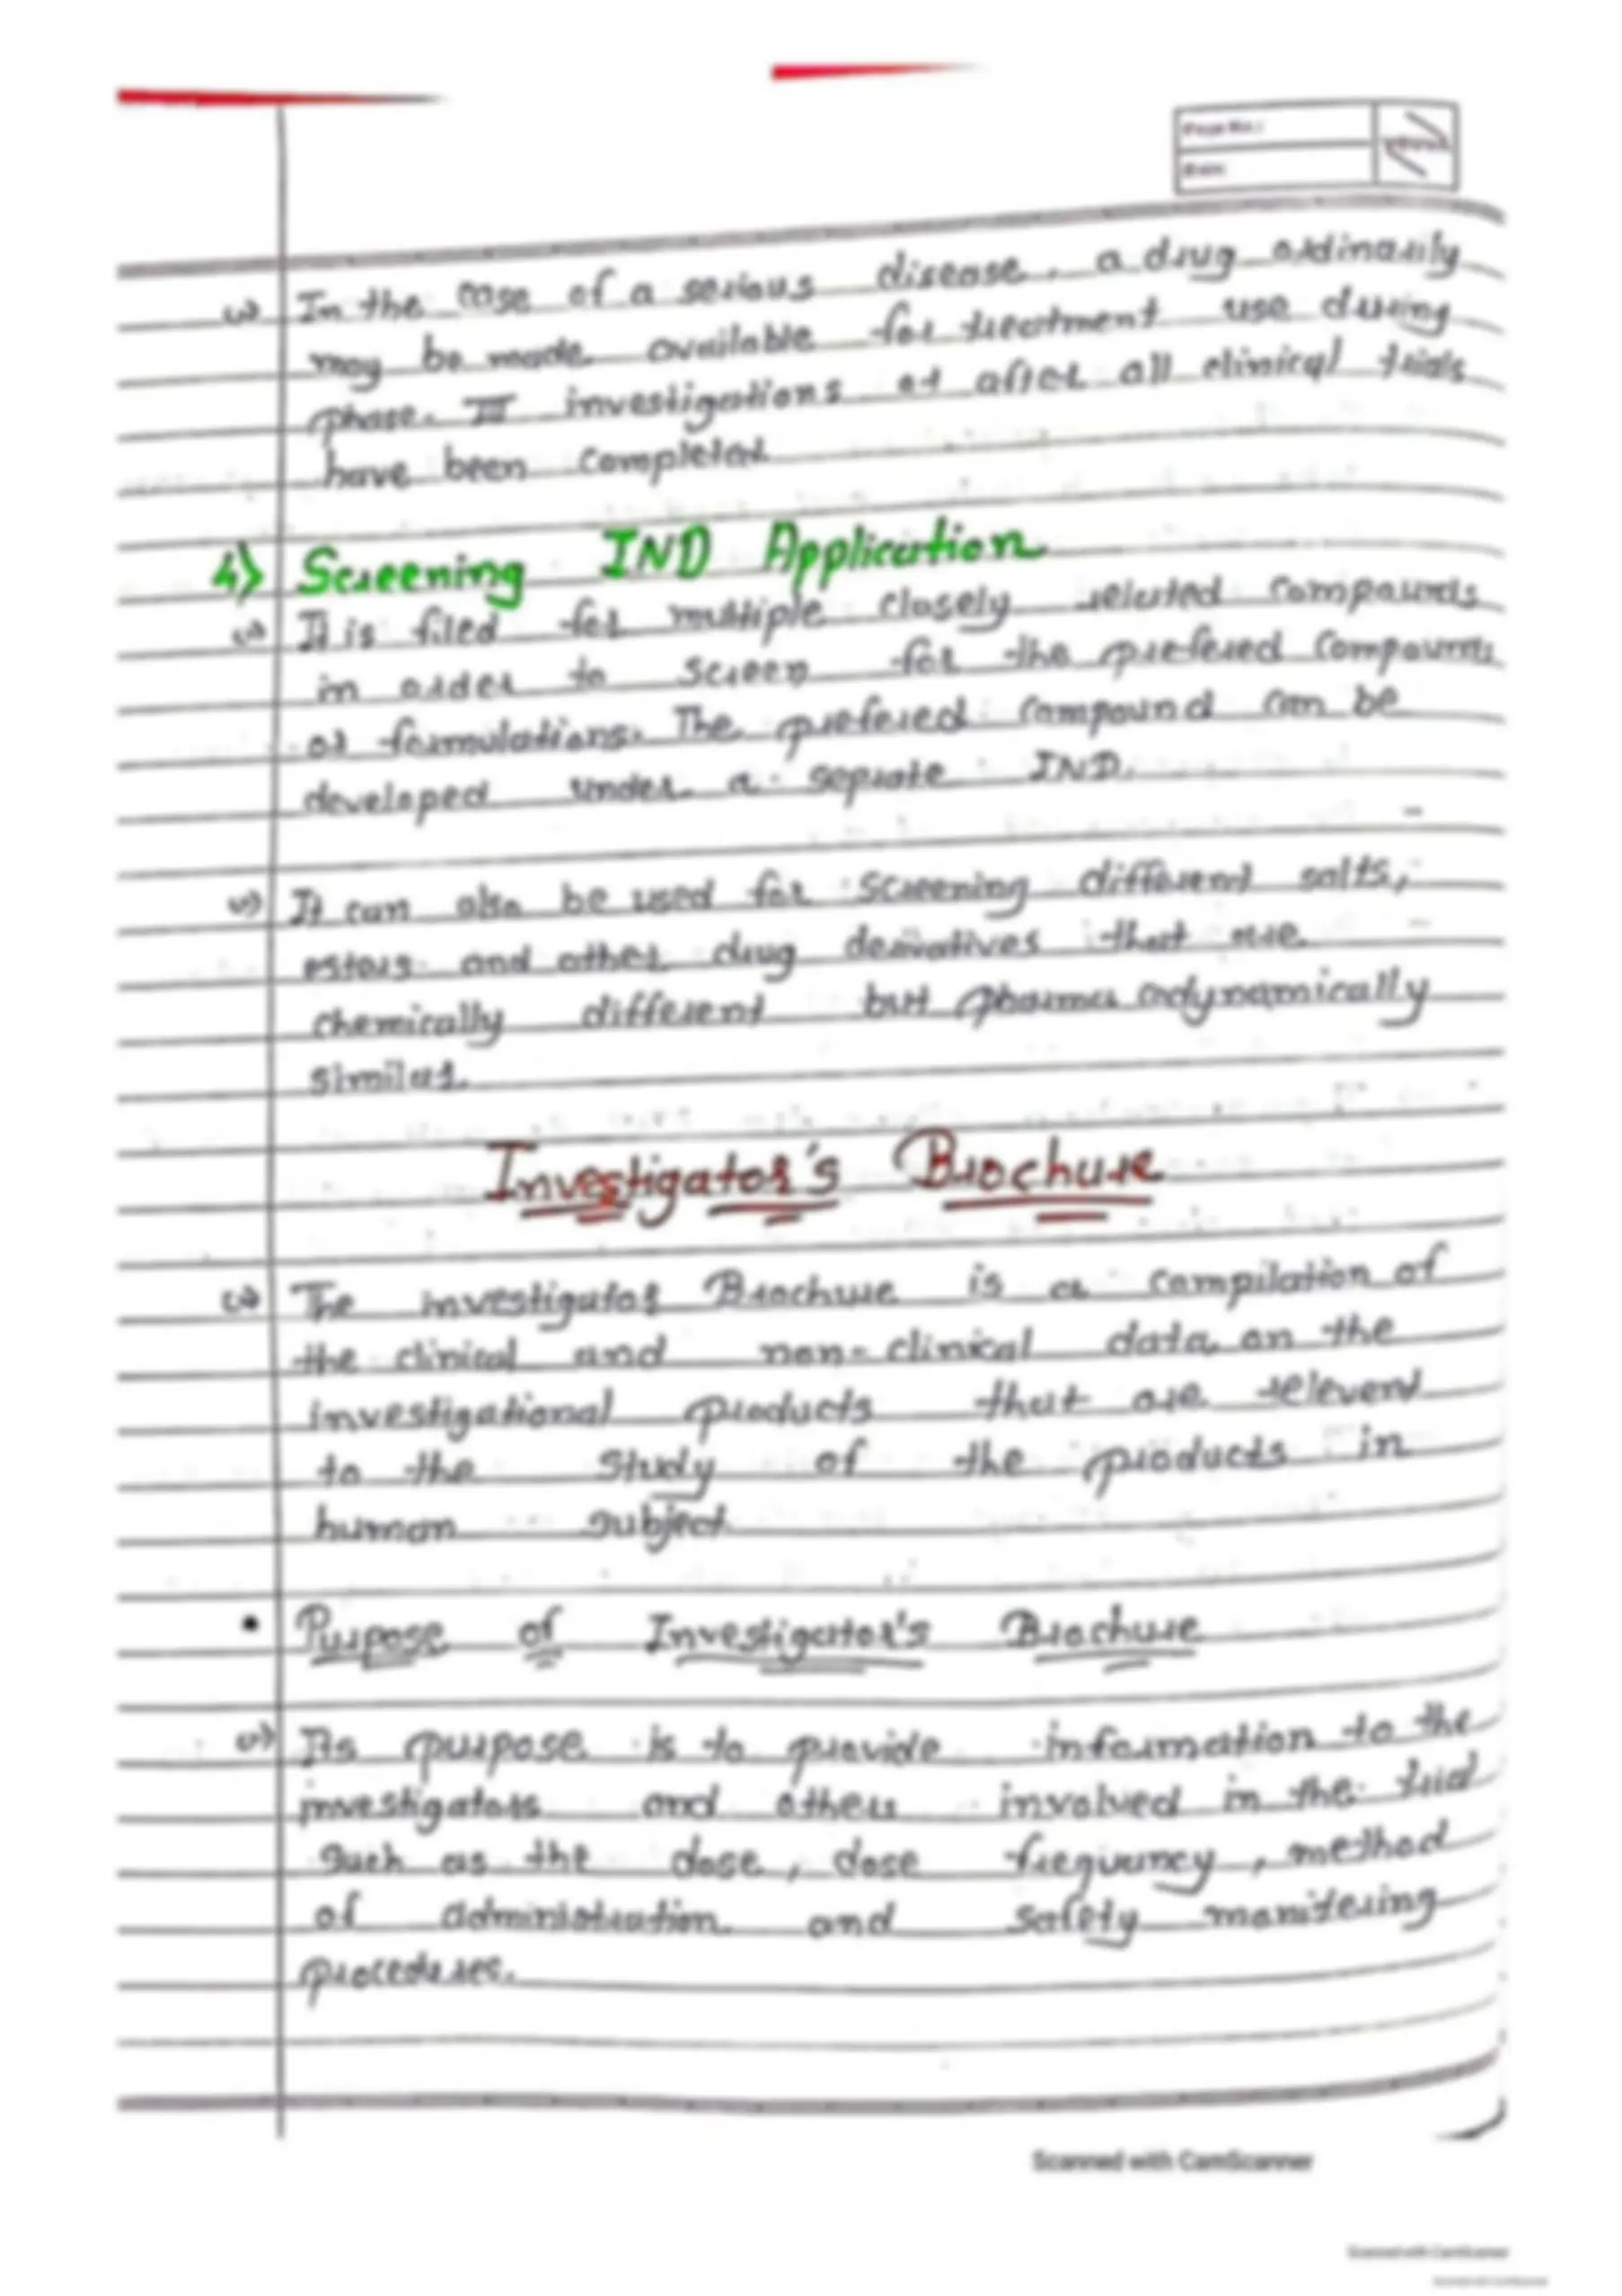 Page No.:
Date:
↪ In the case of a serious disease, a drug ordinarily
may be made available for treatment use during
phase III investigations or after all clinical trials
have been completed
4) Screening IND Application
↪ It is filed for multiple closely related compounds
in order to screen for the prefered compounds
or formulations. The prefered compound can be
developed under a seprate IND.
↪ It can also be used for screening different salts,
esters and other drug derivatives that are
chemically different but pharmacodynamically
similar.
Investigator's Brochure
↪ The investigator Brochure is a compilation of
the clinical and non-clinical data on the
investigational products that are relevent
to the study of the products in
human subject
• Purpose of Investigator's Brochure
↪ Its purpose is to provide information to the
investigators and others involved in the trial
such as the dose, dose frequency, method
of administration and safety monitering
procedures.
Scanned with CamScanner
Scanned with CamScanner
Scanned with CamScanner